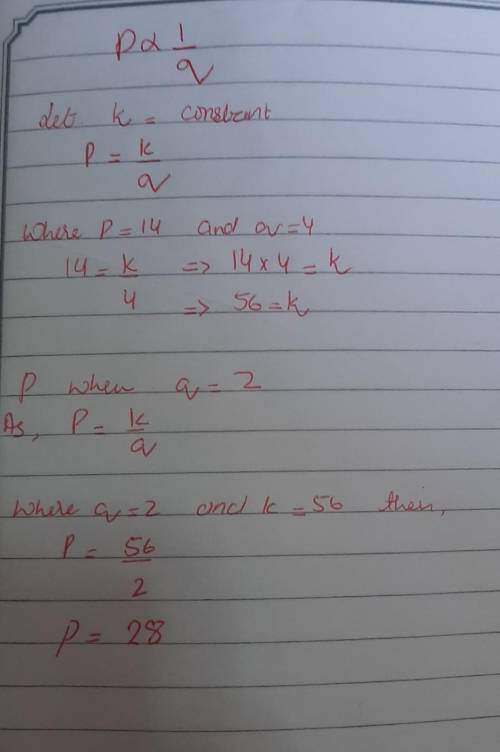 P ∝ 1/q
Let k = constant
P = k/q
Where P = 14 and q = 4
14 = k/4 => 14 × 4 = k
=> 56 = k
P when q = 2
As, P = k/q
Where q = 2 and k = 56 then,
P = 56/2
P = 28